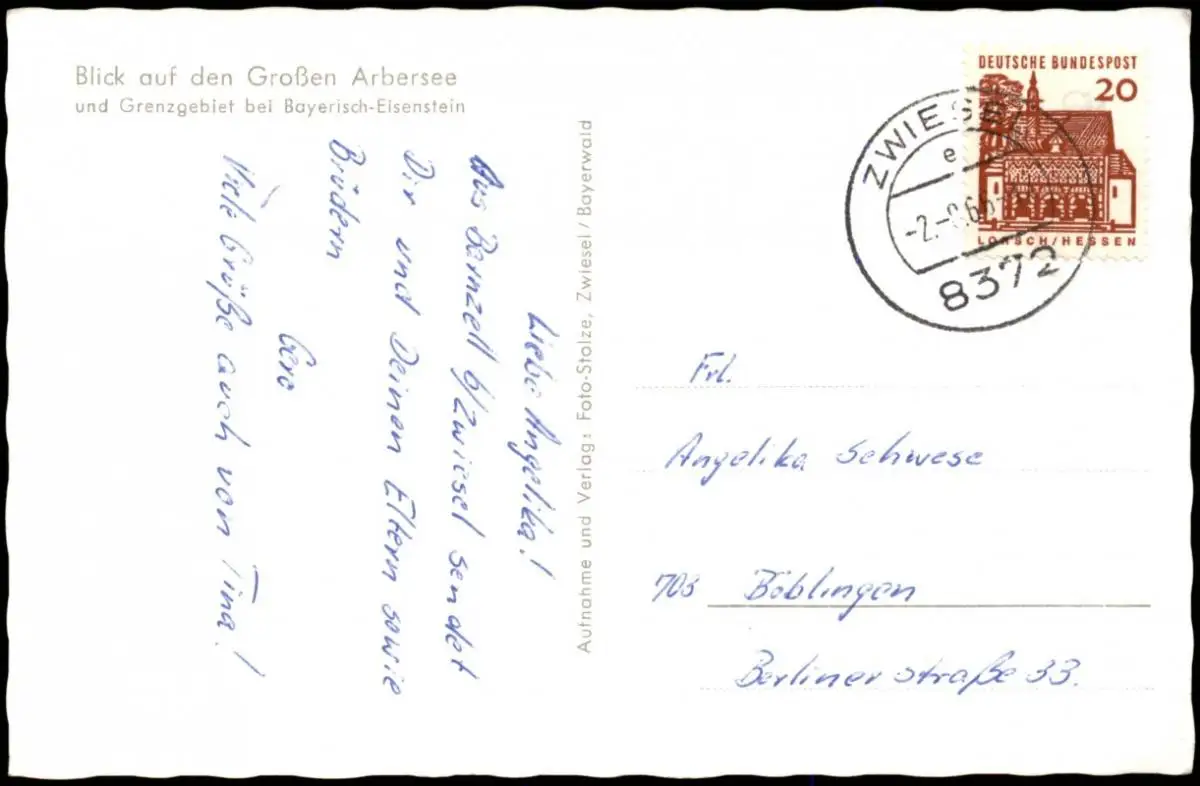 Blick auf den Großen Arbersee
und Grenzgebiet bei Bayerisch-Eisenstein
Liebe Angelika!
Aus Bernzell b/Zwiesel sendet
Dir und Deinen Eltern sowie
Brüdern
Gero
Viele Grüße auch von Tina!
Aufnahme und Verlag: Foto-Stolze, Zwiesel / Bayerwald
DEUTSCHE BUNDESPOST
20
LORSCH/HESSEN
e
8372
Frl.
Angelika Schwese
703 Böblingen
Berliner straße 33.